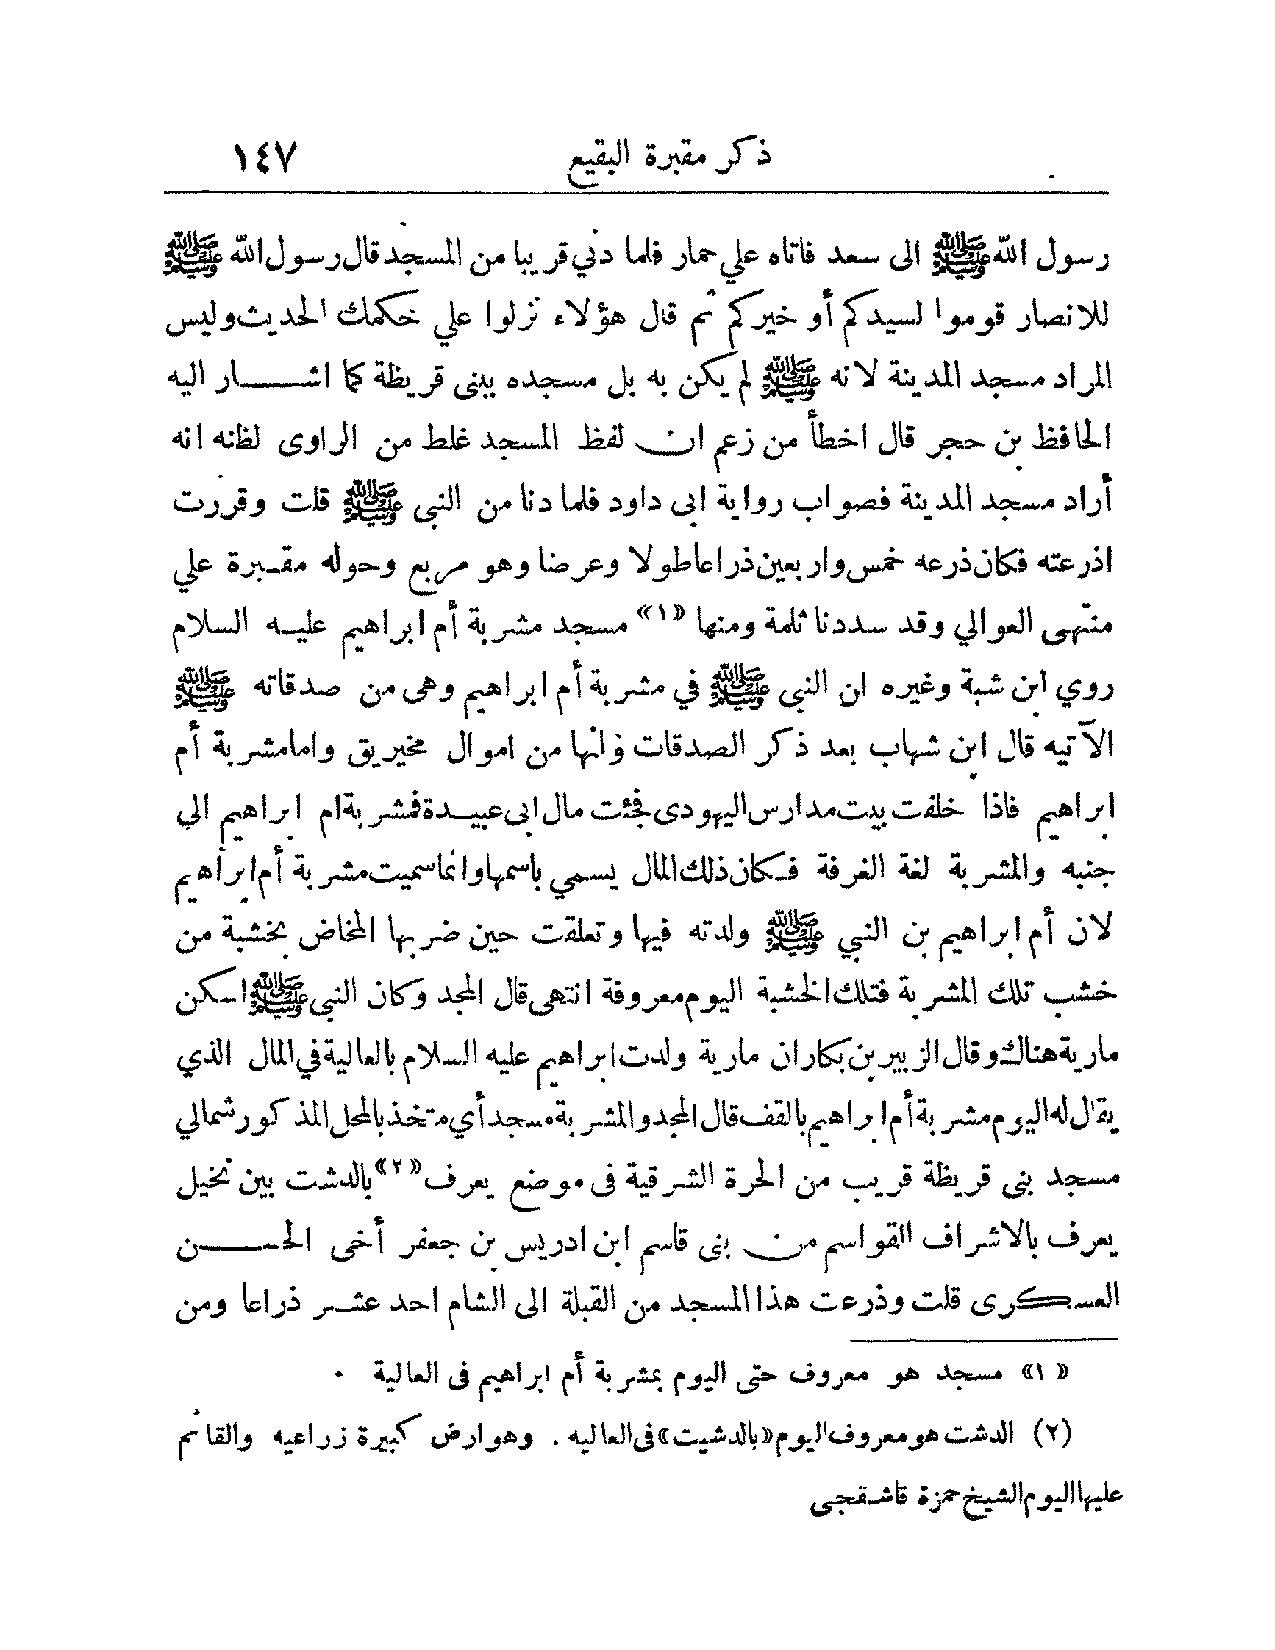 ذكر مقبرة البقيع ١٤٧
رسول الله ﷺ الى سعد فاتاه علي حمار فلما دني قريبا من المسجد قال رسول الله ﷺ
للانصار قوموا لسيدكم أو خيركم ثم قال هؤلاء نزلوا علي حكمك الحديث وليس
المراد مسجد المدينة لانه ﷺ لم يكن به بل مسجده ببنى قريظة كما اشار اليه
الحافظ بن حجر قال اخطأ من زعم ان لفظ المسجد غلط من الراوى لظنه انه
أراد مسجد المدينة فصواب رواية ابى داود فلما دنا من النبى ﷺ قلت وقررت
اذرعته فكان ذرعه خمس واربعين ذراعا طولا وعرضا وهو مربع وحوله مقبرة علي
منتهى العوالي وقد سددنا ثلمة ومنها «١» مسجد مشربة أم ابراهيم عليه السلام
روي ابن شبة وغيره ان النبى ﷺ في مشربة أم ابراهيم وهى من صدقاته ﷺ
الآتيه قال ابن شهاب بعد ذكر الصدقات وانها من اموال مخيريق وامامشربة أم
ابراهيم فاذا خلفت بيت مدارس اليهودى فجئت مال ابى عبيدة فمشربة ام ابراهيم الي
جنبه والمشربة لغة الغرفة فكان ذلك المال يسمي باسمها وانما سميت مشربة أم ابراهيم
لان أم ابراهيم بن النبي ﷺ ولدته فيها وتعلقت حين ضربها المخاض بخشبة من
خشب تلك المشربة فتلك الخشبة اليوم معروفة انتهى قال المجد وكان النبى ﷺ اسكن
مارية هنالك وقال الزبير بن بكار ان مارية ولدت ابراهيم عليه السلام بالعالية في المال الذي
يقال له اليوم مشربة أم ابراهيم بالقف قال المجد والمشربة مسجد أي متخذ بالمحل المذكور شمالي
مسجد بنى قريظة قريب من الحرة الشرقية فى موضع يعرف «٢» بالدشت بين نخيل
يعرف بالاشراف القواسم من بنى قاسم ابن ادريس بن جعفر أخى الحسن
العسكرى قلت وذرعت هذا المسجد من القبلة الى الشام احد عشر ذراعا ومن
«١» مسجد هو معروف حتى اليوم بمشربة أم ابراهيم فى العالية .
(٢) الدشت هو معروف اليوم «بالدشيت» فى العاليه . وهو ارض كبيرة زراعيه والقائم
عليها اليوم الشيخ حمزة قاشقجى